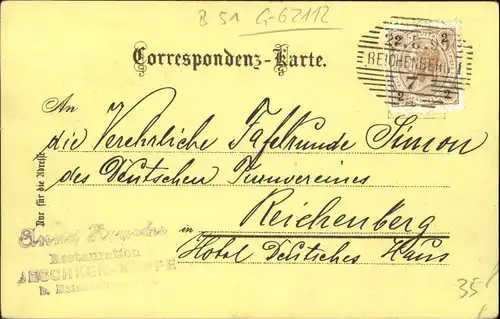 B 51 G-62112
Correspondenz-Karte.
2 2
22.6.99
REICHENBERG 1
7
2 2
An
die Verehrliche Tafelrunde Simon
des Deutschen Turnvereines
in Reichenberg
Hotel Deutsches Haus
Nur für die Adresse
Restauration
JESCHKEN-KOPPE
b.
35